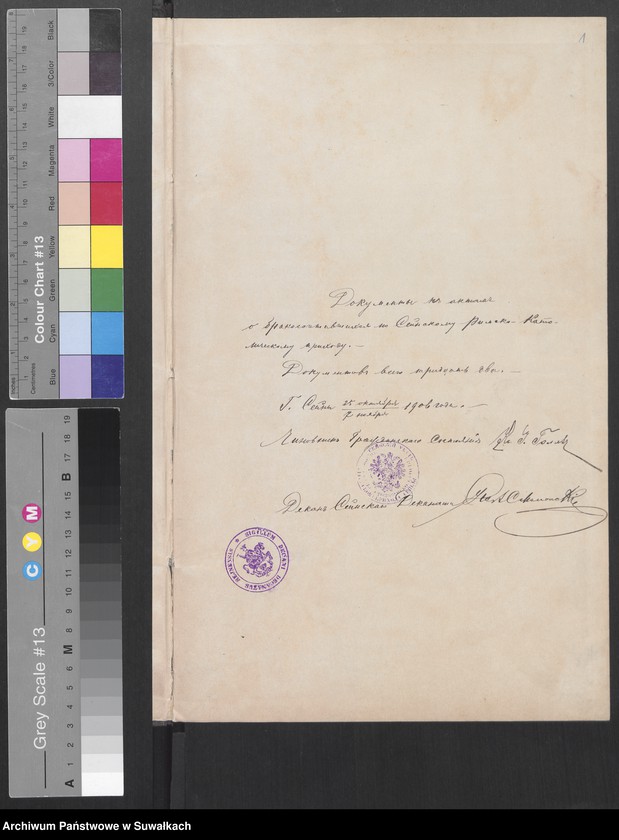 1
Документы къ актамъ
о бракосочетавшихся по Сейнскому Римско-Като-
лическому приходу. —
Документовъ всего тридцать два. —
Г. Сейны 25 октября / 7 ноября 1906 года. —
Чиновникъ Гражданскаго Состоянія
Деканъ Сейнскаго Деканата
SIGILLUM DECANI DECANATUS SEJNENSIS
Colour Chart #13
Blue Cyan Green Yellow Red Magenta White 3/Color Black
Inches
Centimetres
Grey Scale #13
C Y M
A 1 2 3 4 5 6 M 8 9 10 11 12 13 14 15 B 17 18 19
Archiwum Państwowe w Suwałkach